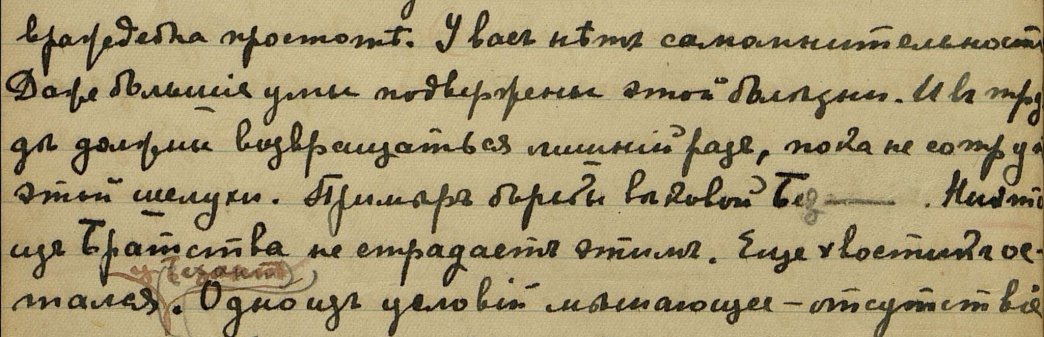 враждебна простотѣ. У васъ нѣтъ самомнительности
Даже большіе умы подвержены этой болѣзни. И въ тру
дъ должны возвращаться лишній разъ, пока не сотру
этой шелухи. Примѣръ борьбы вѣковой Без— . Никто
изъ Братства не страдаетъ этимъ. Еще хвостикъ ос-
у Безант
тался. Одно изъ условій мѣшающее — отсутствіе